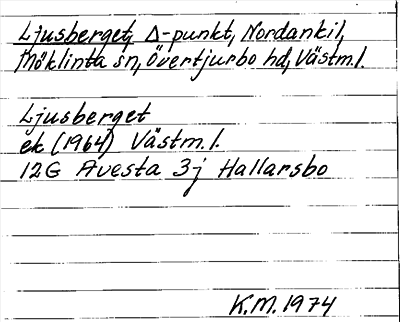 Ljusberget, Δ-punkt, Nordankil,
Möklinta sn, Övertjurbo hd, Västm.l.
Ljusberget
ek (1964) Västm.l.
12G Avesta 3j Hallarsbo
K.M. 1974